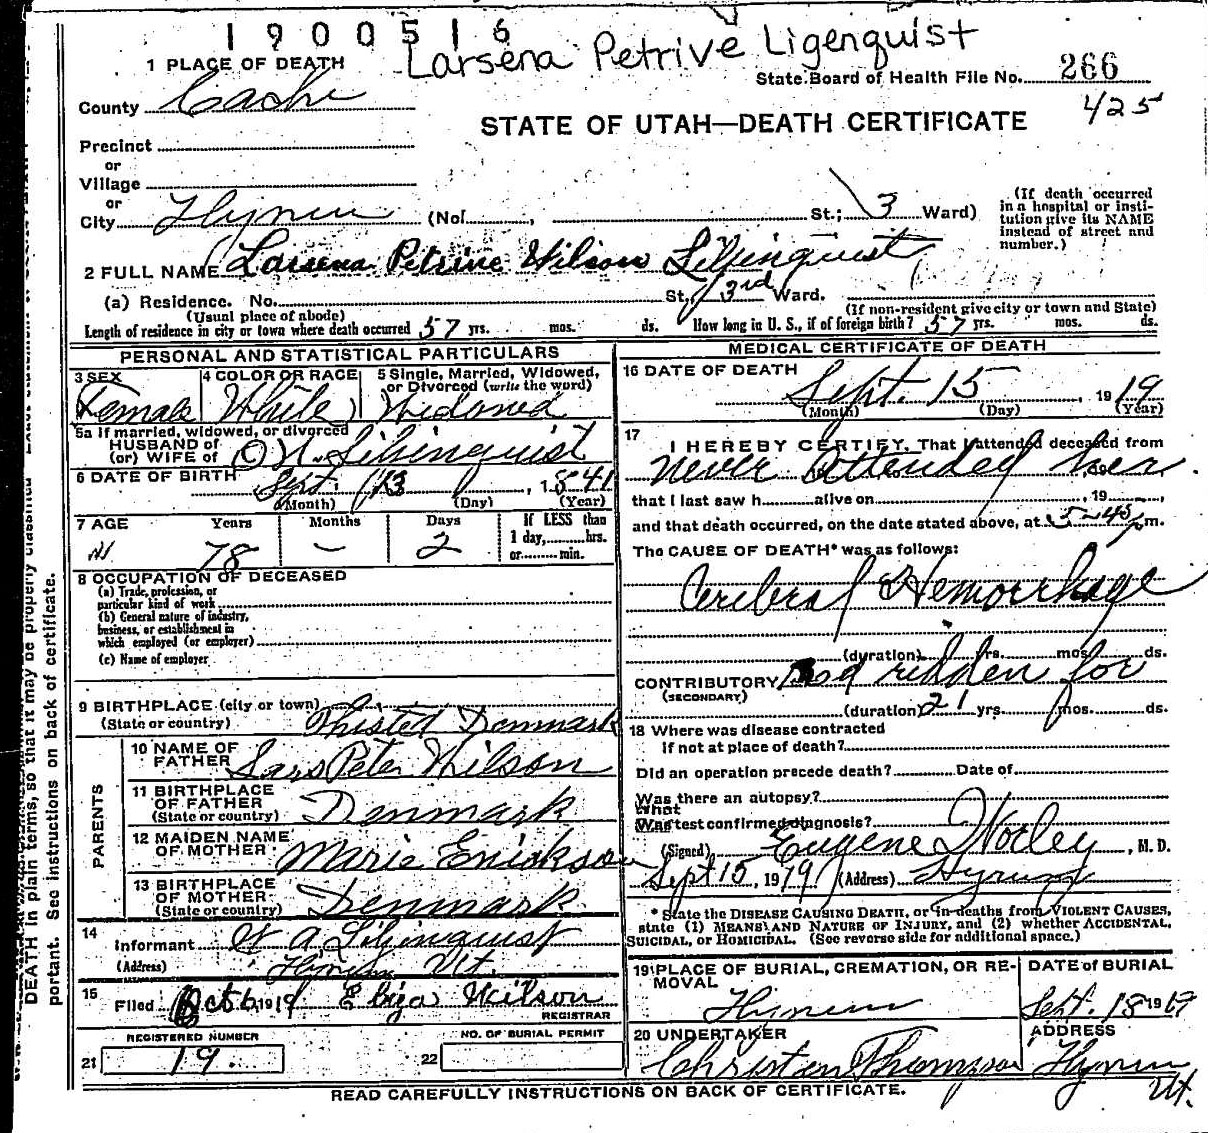 1900516
Larsena Petrive Ligenquist
1 PLACE OF DEATH
State Board of Health File No. 266
County Cache
425
STATE OF UTAH—DEATH CERTIFICATE
Precinct
or
Village
or
City Hyrum (No. , St.; 3 Ward)
(If death occurred in a hospital or institution give its NAME instead of street and number.)
2 FULL NAME Larsena Petrine Wilson Liljenquist
(a) Residence. No. St., 3rd Ward.
(Usual place of abode) (If non-resident give city or town and State)
Length of residence in city or town where death occurred 57 yrs. mos. ds. How long in U. S., if of foreign birth? 57 yrs. mos. ds.
PERSONAL AND STATISTICAL PARTICULARS
3 SEX Female
4 COLOR OR RACE White
5 Single, Married, Widowed, or Divorced (write the word) Widowed
5a If married, widowed, or divorced
HUSBAND of
(or) WIFE of O N. Liljenquist
6 DATE OF BIRTH Sept. 13, 1841
(Month) (Day) (Year)
7 AGE Years Months Days If LESS than
1 day, hrs.
or min.
78 – 2
8 OCCUPATION OF DECEASED
(a) Trade, profession, or
particular kind of work
(b) General nature of industry,
business, or establishment in
which employed (or employer)
(c) Name of employer
9 BIRTHPLACE (city or town)
(State or country) Thisted Denmark
PARENTS
10 NAME OF
FATHER Lars Peter Wilson
11 BIRTHPLACE
OF FATHER
(State or country) Denmark
12 MAIDEN NAME
OF MOTHER Marie Erickson
13 BIRTHPLACE
OF MOTHER
(State or country) Denmark
14
Informant A Liljenquist
(Address) Hyrum Ut.
15
Filed Oct 6, 1919 Eliza Wilson
REGISTRAR
REGISTERED NUMBER
21 19.
NO. OF BURIAL PERMIT
22
MEDICAL CERTIFICATE OF DEATH
16 DATE OF DEATH
Sept. 15, 1919
(Month) (Day) (Year)
17
I HEREBY CERTIFY, That I attended deceased from
Never attended her.
that I last saw h alive on , 19 ,
and that death occurred, on the date stated above, at 5-45 p m.
The CAUSE OF DEATH* was as follows:
Cerebral Hemorrhage
(duration) yrs. mos. ds.
CONTRIBUTORY Bed ridden for
(SECONDARY)
(duration) 21 yrs. mos. ds.
18 Where was disease contracted
if not at place of death?
Did an operation precede death? Date of
Was there an autopsy?
What test confirmed diagnosis?
(Signed) Eugene Worley, M. D.
Sept 15, 1919 (Address) Hyrum
* State the DISEASE CAUSING DEATH, or in deaths from VIOLENT CAUSES,
state (1) MEANS AND NATURE OF INJURY, and (2) whether ACCIDENTAL,
SUICIDAL, OR HOMICIDAL. (See reverse side for additional space.)
19 PLACE OF BURIAL, CREMATION, OR REMOVAL
Hyrum
DATE of BURIAL
Sept. 18 1919
20 UNDERTAKER
Christian Thompson
ADDRESS
Hyrum
Ut.
READ CAREFULLY INSTRUCTIONS ON BACK OF CERTIFICATE.
DEATH in plain terms, so that it may be properly classified
portant. See instructions on back of certificate.